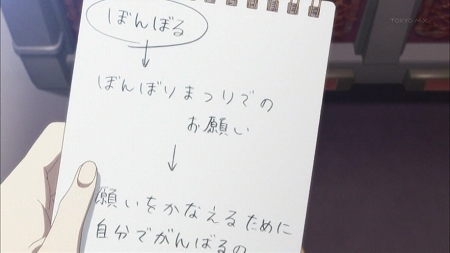 TOKYO MX
ぼんぼる
ぼんぼりまつりでの
お願い
願いをかなえるために
自分でがんばるの